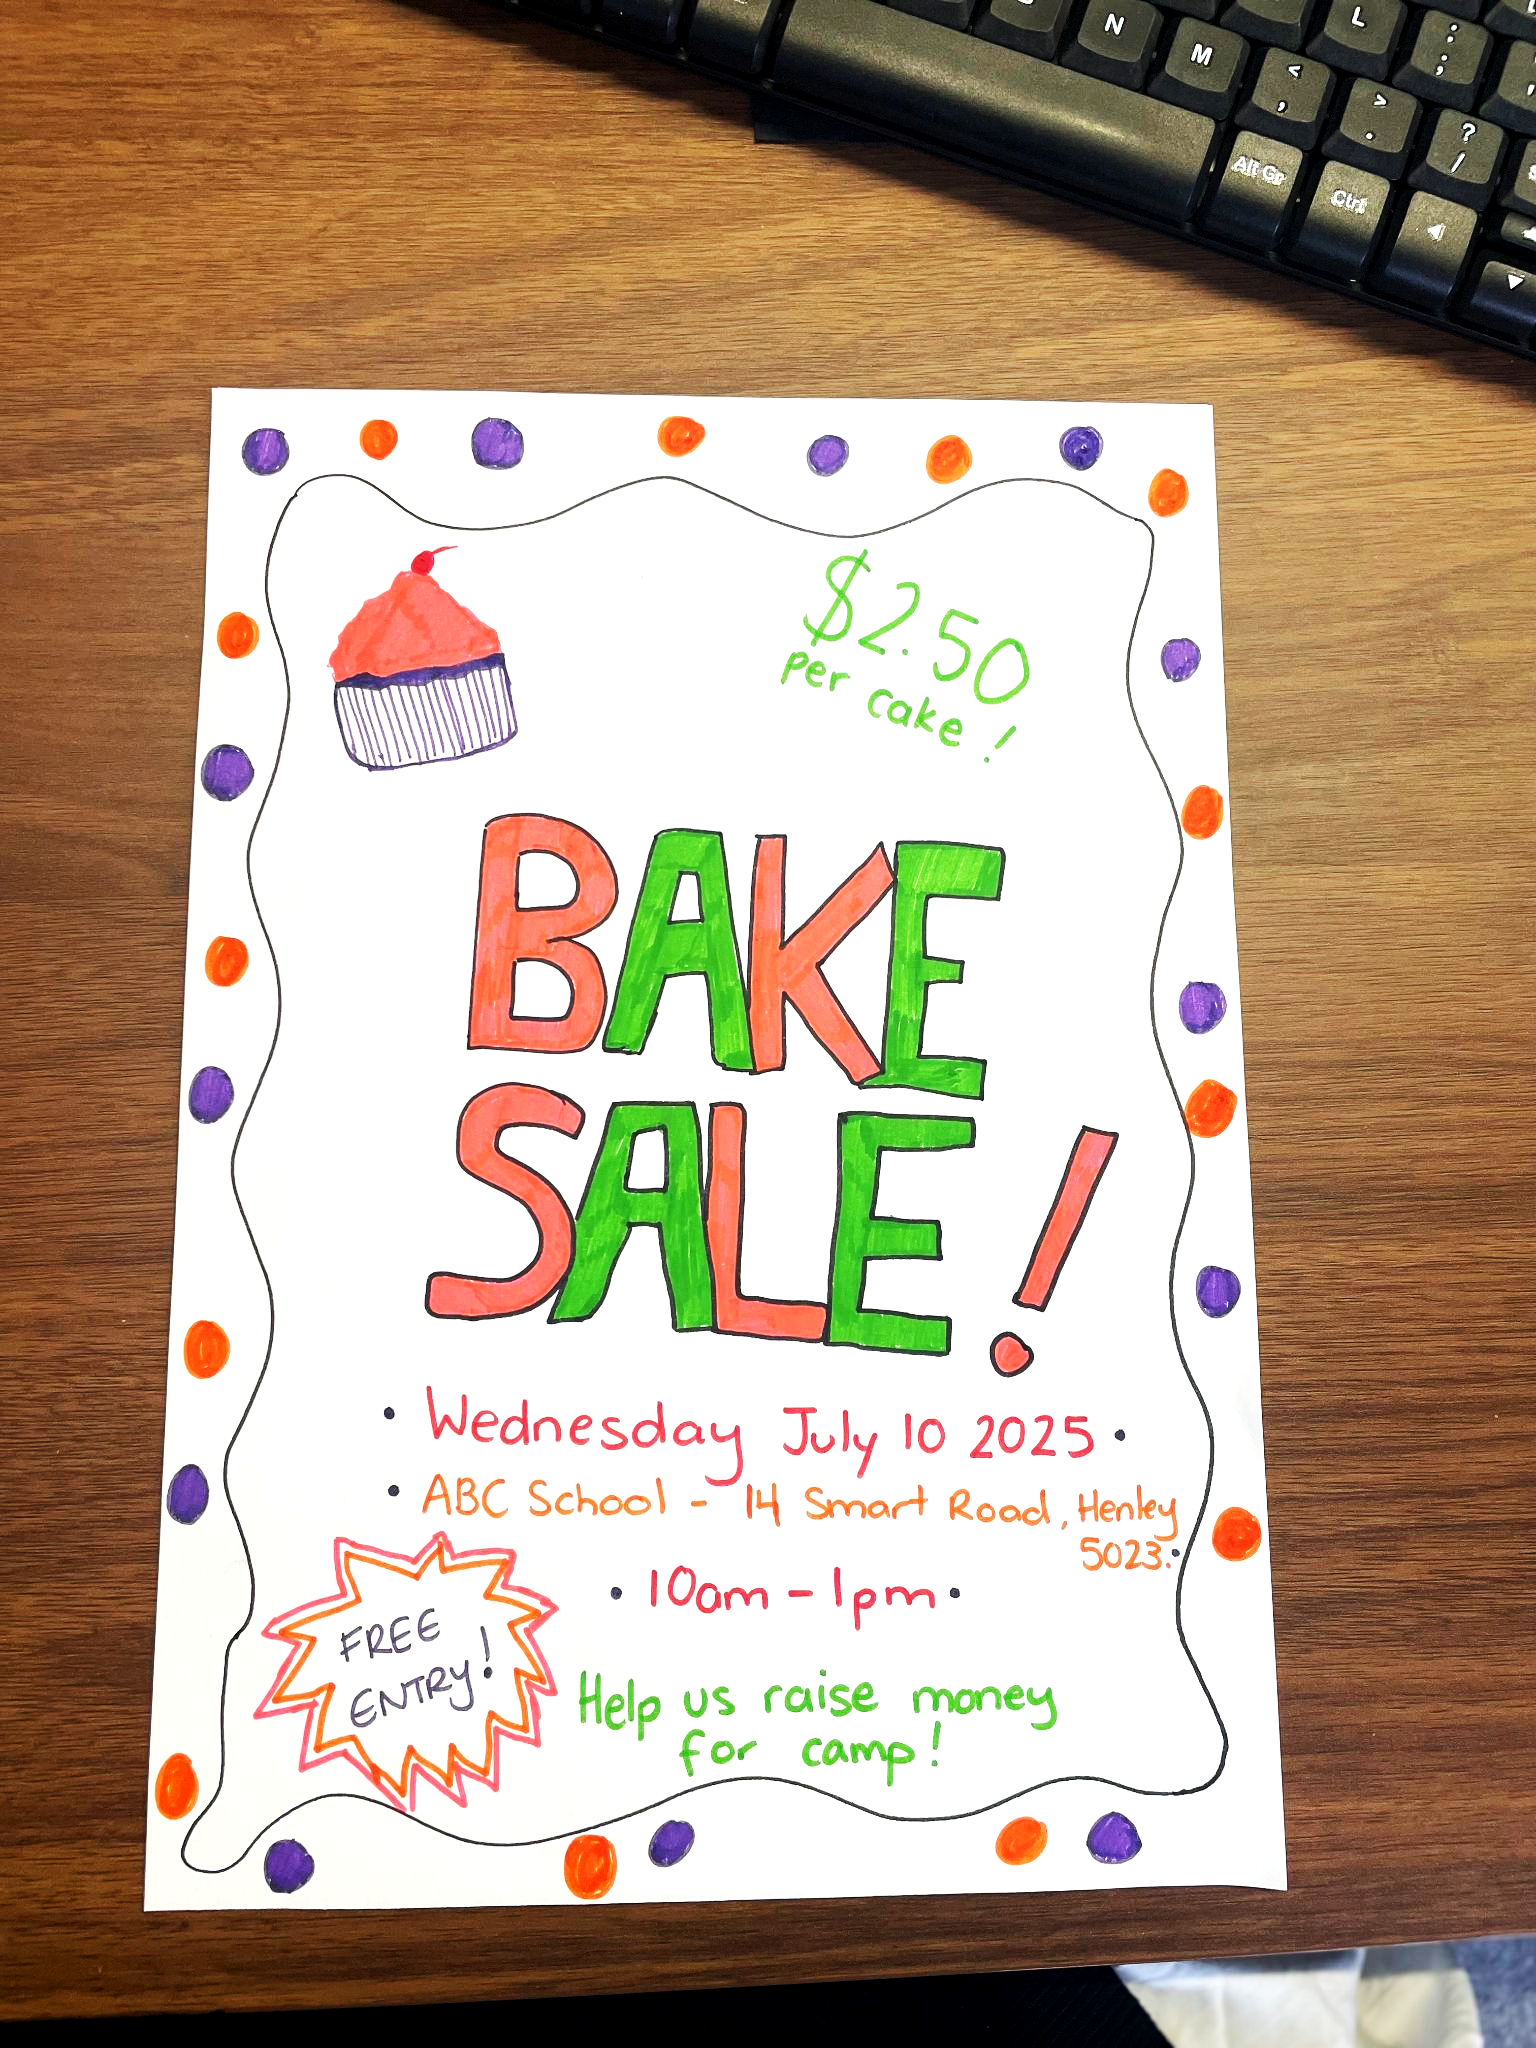 N
M
L
<
,
>
.
?
/
:
;
Alt Gr
Ctrl
$2.50
per cake!
BAKE
SALE!
• Wednesday July 10 2025 •
• ABC School - 14 Smart Road, Henley
5023. •
• 10am - 1pm •
FREE
ENTRY!
Help us raise money
for camp!